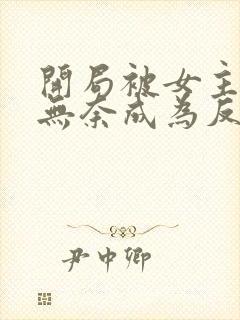 開局被女主
無奈成為反
尹中卿